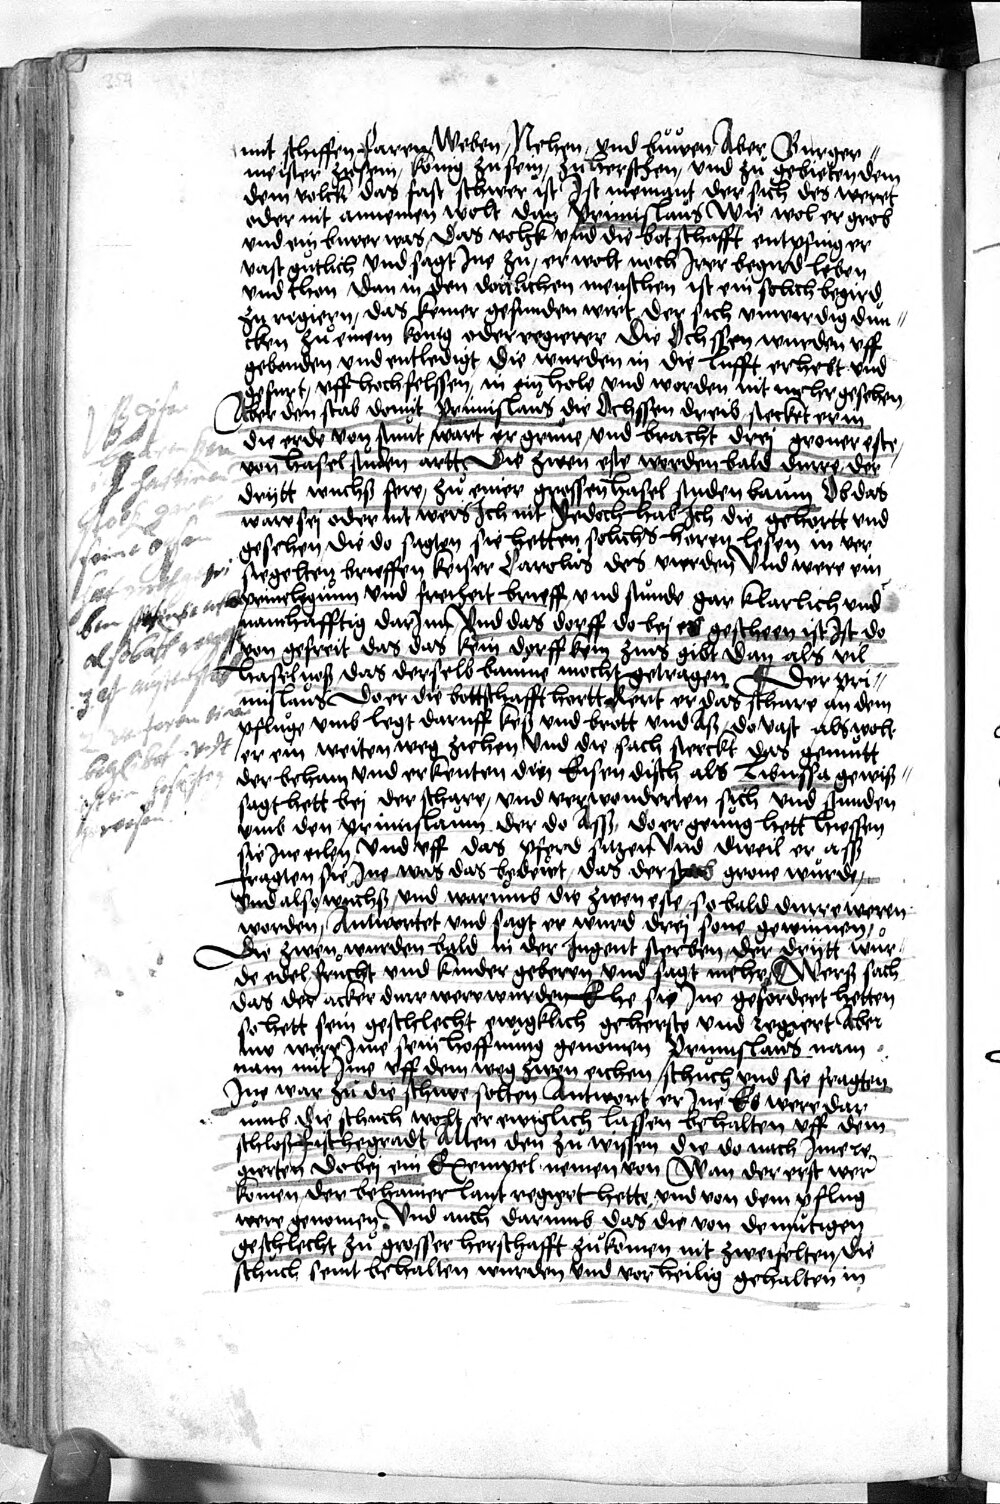 mit schiffen, faren, Weben, Nehen, vnd buwen Aber Burger//
meister zusein, konig zu sein, zuherschen, vnd zu gebieten dem
dem volck das fast schwer ist Ist niemant der sich des weret
oder nit annemen wolt dan Primislaus Wie wol er grob
vnd ein buwer was, das volck vnd die botschafft entpfing er
vast gutlich vnd sagt Ine zu, er wolt noch Irer begird leben
vnd thon dan in den dotlichen menschen ist ein solich begird
zu regiern, das keiner gefunden wirt der sich vnwirdig dun//
cken zu einem konig oder regierer Die Ochssen wurden vff
gebonden vnd entledigt die wurden in die lufft erhebt vnd
gefurt, vff hoch felssen, in ein hole vnd worden nit mehr gesehen
Aber den stab domit Primislaus die Ochssen dreib, stecket er in
die erde von stunt wart er grune, vnd bracht drei groner este,
von hasel studen artt, Die zwen este worden bald durre, der
dritt wuchß fere, zu einer grossen hasel studen baum Ob das
ware sei oder nit weis Ich nit Jedoch hab Ich die gehortt vnd
gesehen die do sagten sie hetten solichs horen lesen in ver
siegelten brieffen keiser Carolus des vierden Vnd were ein
priuilegium vnd freiheit brieff vnd stunde gar klarlich vnd
namhafftig dar Inn Vnd das dorff do bei es gescheen ist Ist do
von gefreit das das kein dorff kein zins gibt dan als vil
haselnoß das derselb baume mocht getragen Der pri//
mislaus Do er die bottschafft hortt kert er das schare an dem
pfluge vmb legt daruff keß vnd brott vnd aß, do vast als wolt
er ein weiten weg ziehen Vnd die sach sterckt das gemutt
der beham vnd erkenten den Eisen disch als Libussa gewiß//
sagt hett bei der schare, vnd verwonderten sich vnd stunden
vmb den primislaum der do Asß, do er genug hett hiessen
sie Ine eilen Vnd vff das pferd sitzen Vnd dweil er asß
fragten sie Ine was das bedewt, das der stab grone wurde,
Vnd also wuchß, vnd warumb die zwen este, so bald durre weren
worden, Antwortet vnd sagt er wurd drei sone gewinnen,
Die zwen wurden bald in der Jugent sterben, der dritt wur
de edel frucht vnd kinder geberen vnd sagt mehr, Werß sach
das der acker dar were wurden Ehe sie Ine gefordert hetten
so hett sein geschlecht ewigklich geherst vnd regiert Aber
nu were Ine sein hoffnung genomen Primislaus nam
nam mit Ime vff dem weg zwen eichen schuch vnd sie fragten
Ine war zu die schuwe solten Antwort er Ine Es were dar
umb die schuch wolt er ewiglich lassen behalten vff dem
schloß Fischegradt Allen den zu wissen die do nach Ime re
gierten do bei ein Exempel nemen von Wan der erst wer
komen der behamer lant regiert hette vnd von dem pflug
were genomen, Vnd auch darumb das die von demutigen
geschlecht zu grosser herschafft zukomen nit zweifelten, die
schuch seint behalten wurden vnd vor heilig gehalten in